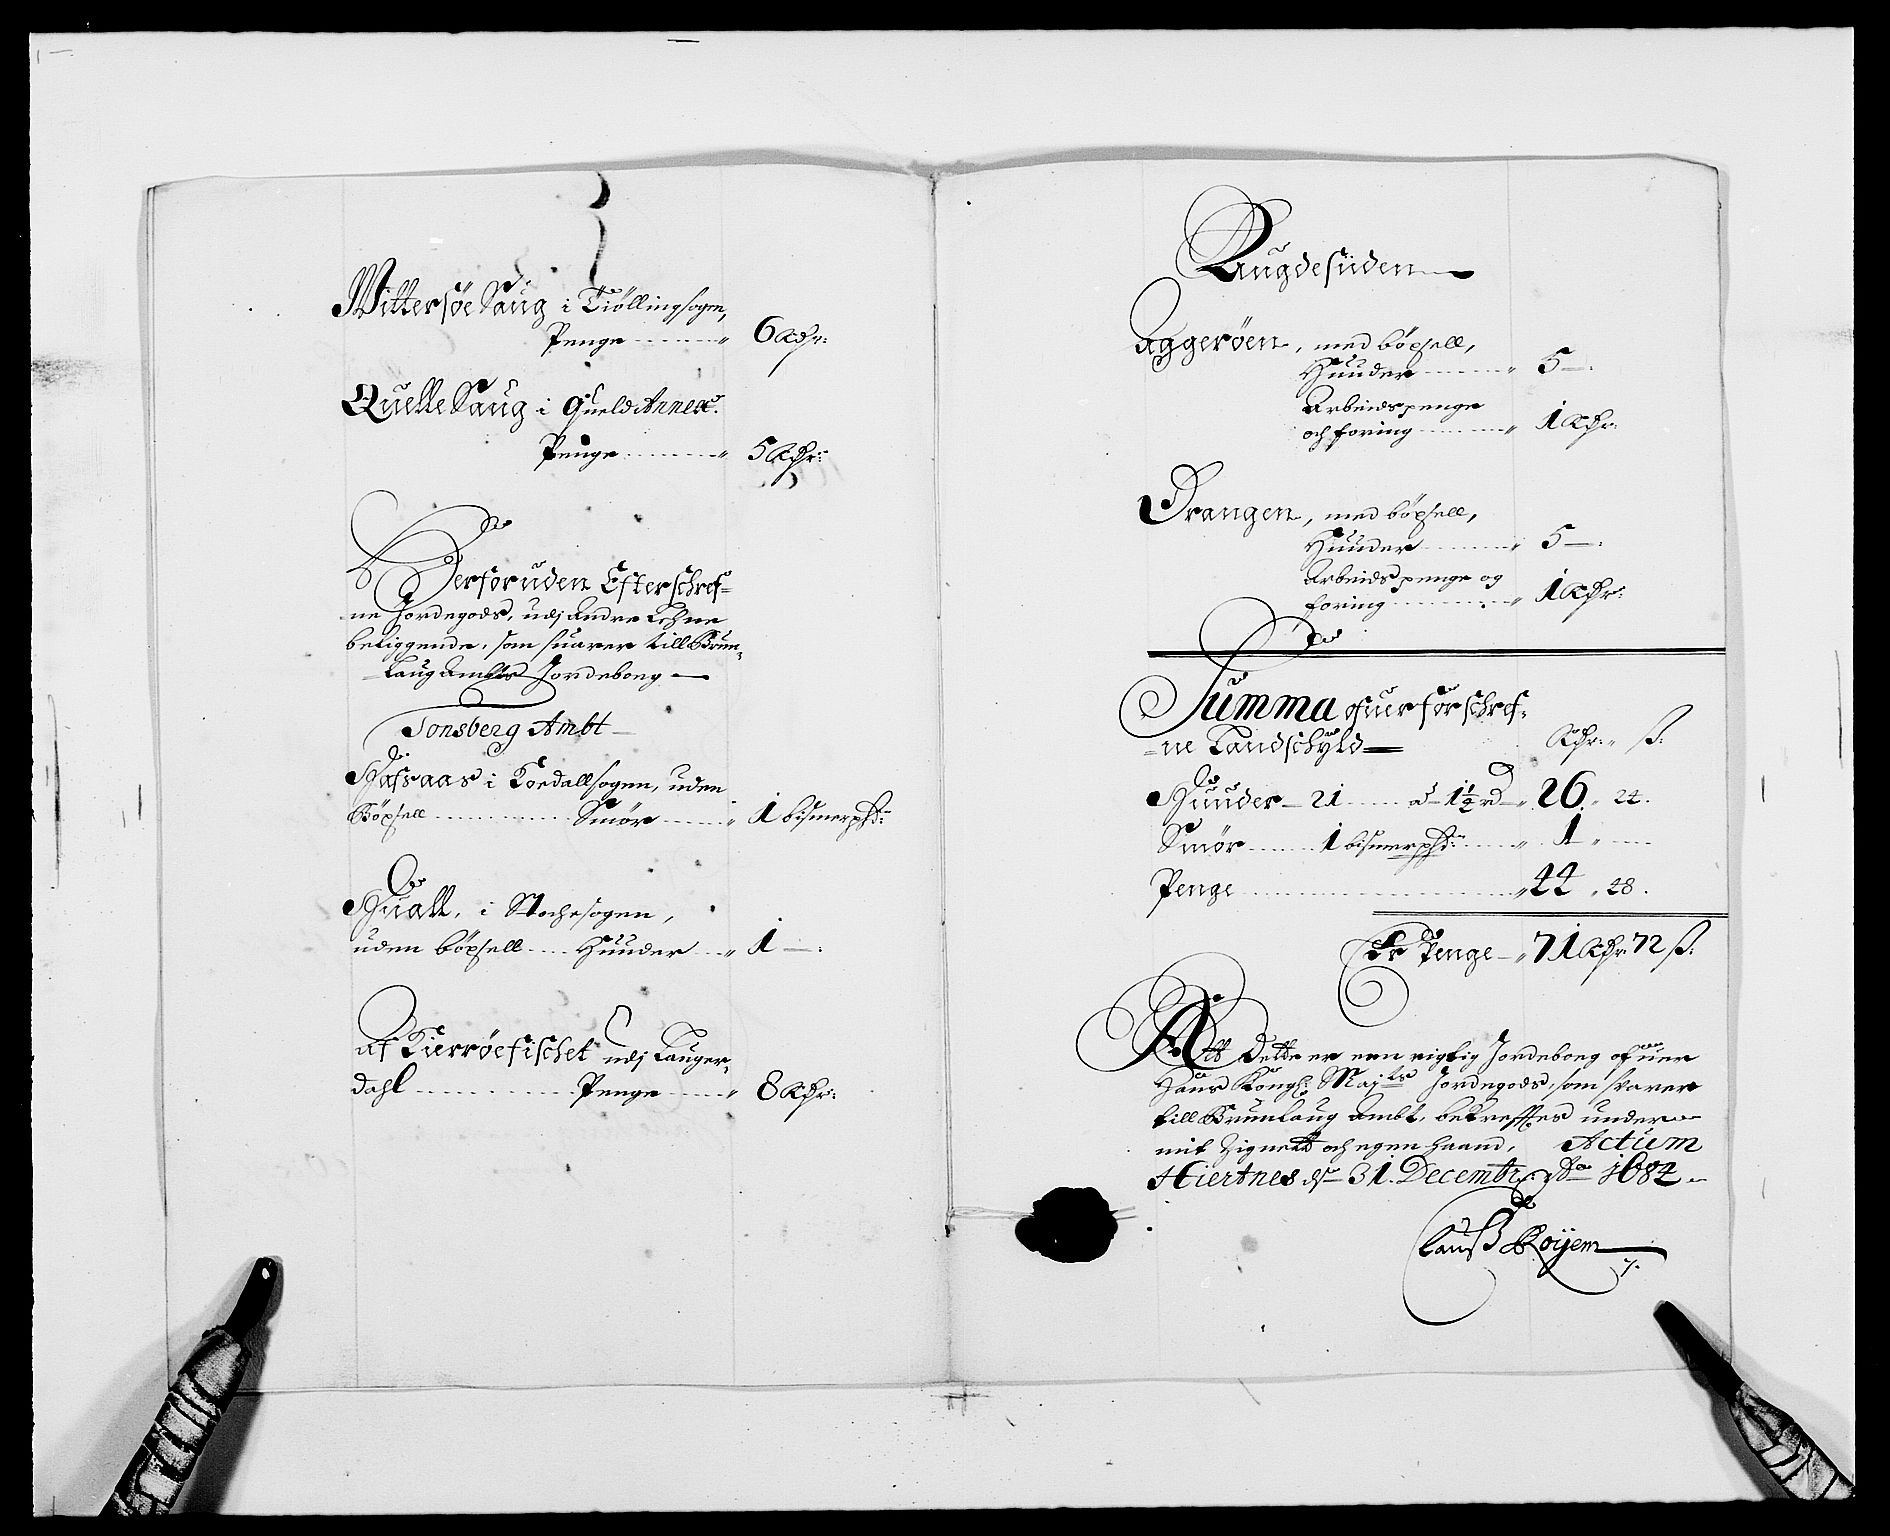 Wittersøe Saug i Tiøllingsogen,
Penge — „ 6 Rdr:
Quelle Saug i Queld Annex.
Penge — „ 5 Rdr:
Derforuden Efterschref=
ne Jordegods, udj Andre Lehne
beliggende, som suarer till Brun=
Laug Ambts Jordeboeg —
Tonsberg Ambt —
Hafsaas i Kordallsogen, uden
Böxsell — Smör — „ 1 bismerpd:
Huall, i Stochesogen,
uden böxsell — Huuder — „ 1 —.
Af Kierröefischet udj Lauger=
dahl — Penge — „ 8 Rdr:
Augdesiiden —
Aggeröen, med böxsell,
Huuder — „ 5 —.
Arbeidspenge
och foring — „ 1 Rdr:
Drangen, med böxsell,
Huuder — „ 5 —.
Arbeidspenge og
foring — „ 1 Rdr:
Summa ofuer forschref=
ne Landschÿld — Rdr: „ ß:
Huuder — 21 — a 1½ rd — „ 26 „ 24.
Smör — 1 bismerpd: — „ 1 „ —
Penge — „ 44 „ 48.
Er Penge — „ 71 Rdr 72 ß:
Att Dette er een rigtig Jordeboeg ofuer
Hans Kongl: Majts Jordegods, som svarer
till Brunlaug Ambt, bekreftes under
mit Zignett och egen haand, Actum
Hiertnes dn 31. Decembr: Ao 1684 —
Clauß Röyem